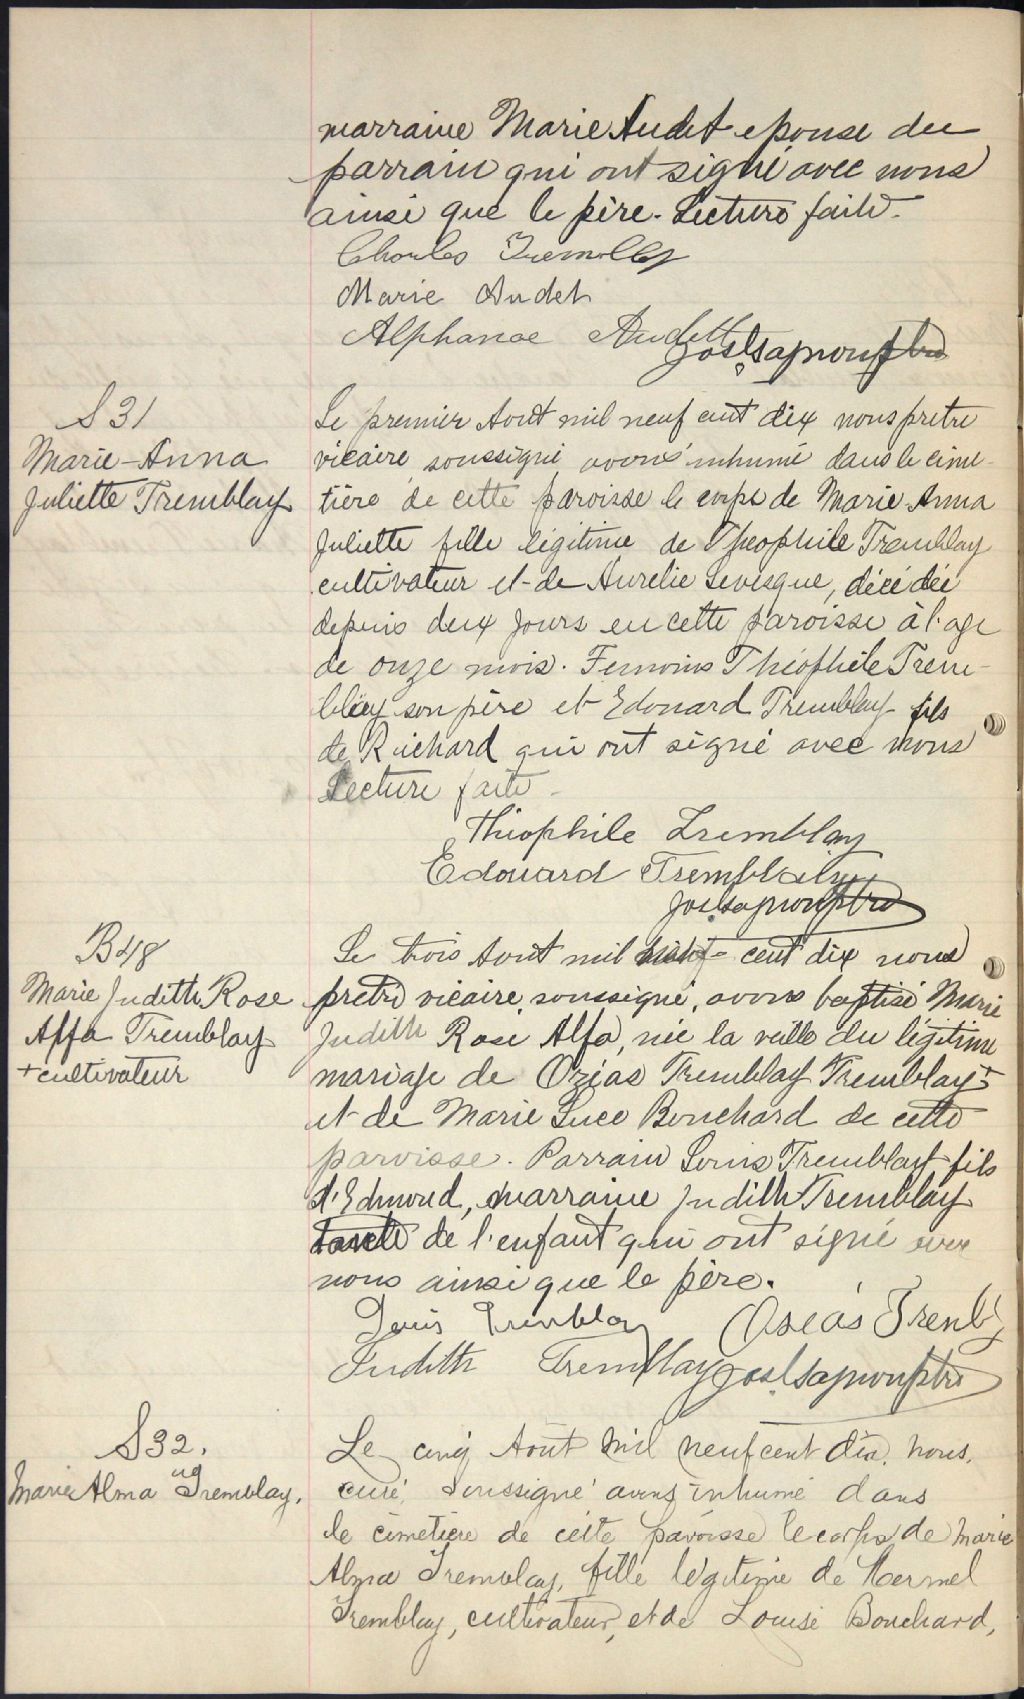 marraine Marie Audet epouse du
parrain qui ont signé avec nous
ainsi que le père. Lecture faite.
Charles Tremblay
Marie Audet
Alphonse Audett
Jos Lapointe ptre
S 31
Marie-Anna
Juliette Tremblay
Le premier Aout mil neuf cent dix nous pretre
vicaire soussigné avons inhumé dans le cime-
tière de cette paroisse le corps de Marie Anna
Juliette fille légitime de Theophile Tremblay
cultivateur et de Aurelie Levesque, décédée
depuis deux jours en cette paroisse à l'age
de onze mois. Temoins Théophile Trem-
blay son père et Edouard Tremblay fils
de Richard qui ont signé avec nous
Lecture faite -
Théophile Tremblay
Edouard Tremblay
Jos Lapointe ptre
B 48
Marie Judith Rose
Alfa Tremblay
+ cultivateur
Le trois Aout mil neuf-cent dix nous
pretre vicaire soussigné, avons baptisé Marie
Judith Rose Alfa, née la veille du légitime
mariage de Ozias Tremblay Tremblay +
et de Marie Luce Bouchard de cette
paroisse. Parrain Louis Tremblay fils
d'Edmond, marraine Judith Tremblay
tante de l'enfant qui ont signé avec
nous ainsi que le père.
Louis Tremblay Oseas Trembl
Judith Tremblay Jos Lapointe ptre
S 32.
Marie Alma Tremblay.
Le cinq Août mil neuf cent dix, nous,
curé soussigné avons inhumé dans
le cimetière de cette paroisse le corps de Marie
Alma Tremblay, fille légitime de Hermel
Tremblay, cultivateur, et de Louise Bouchard,